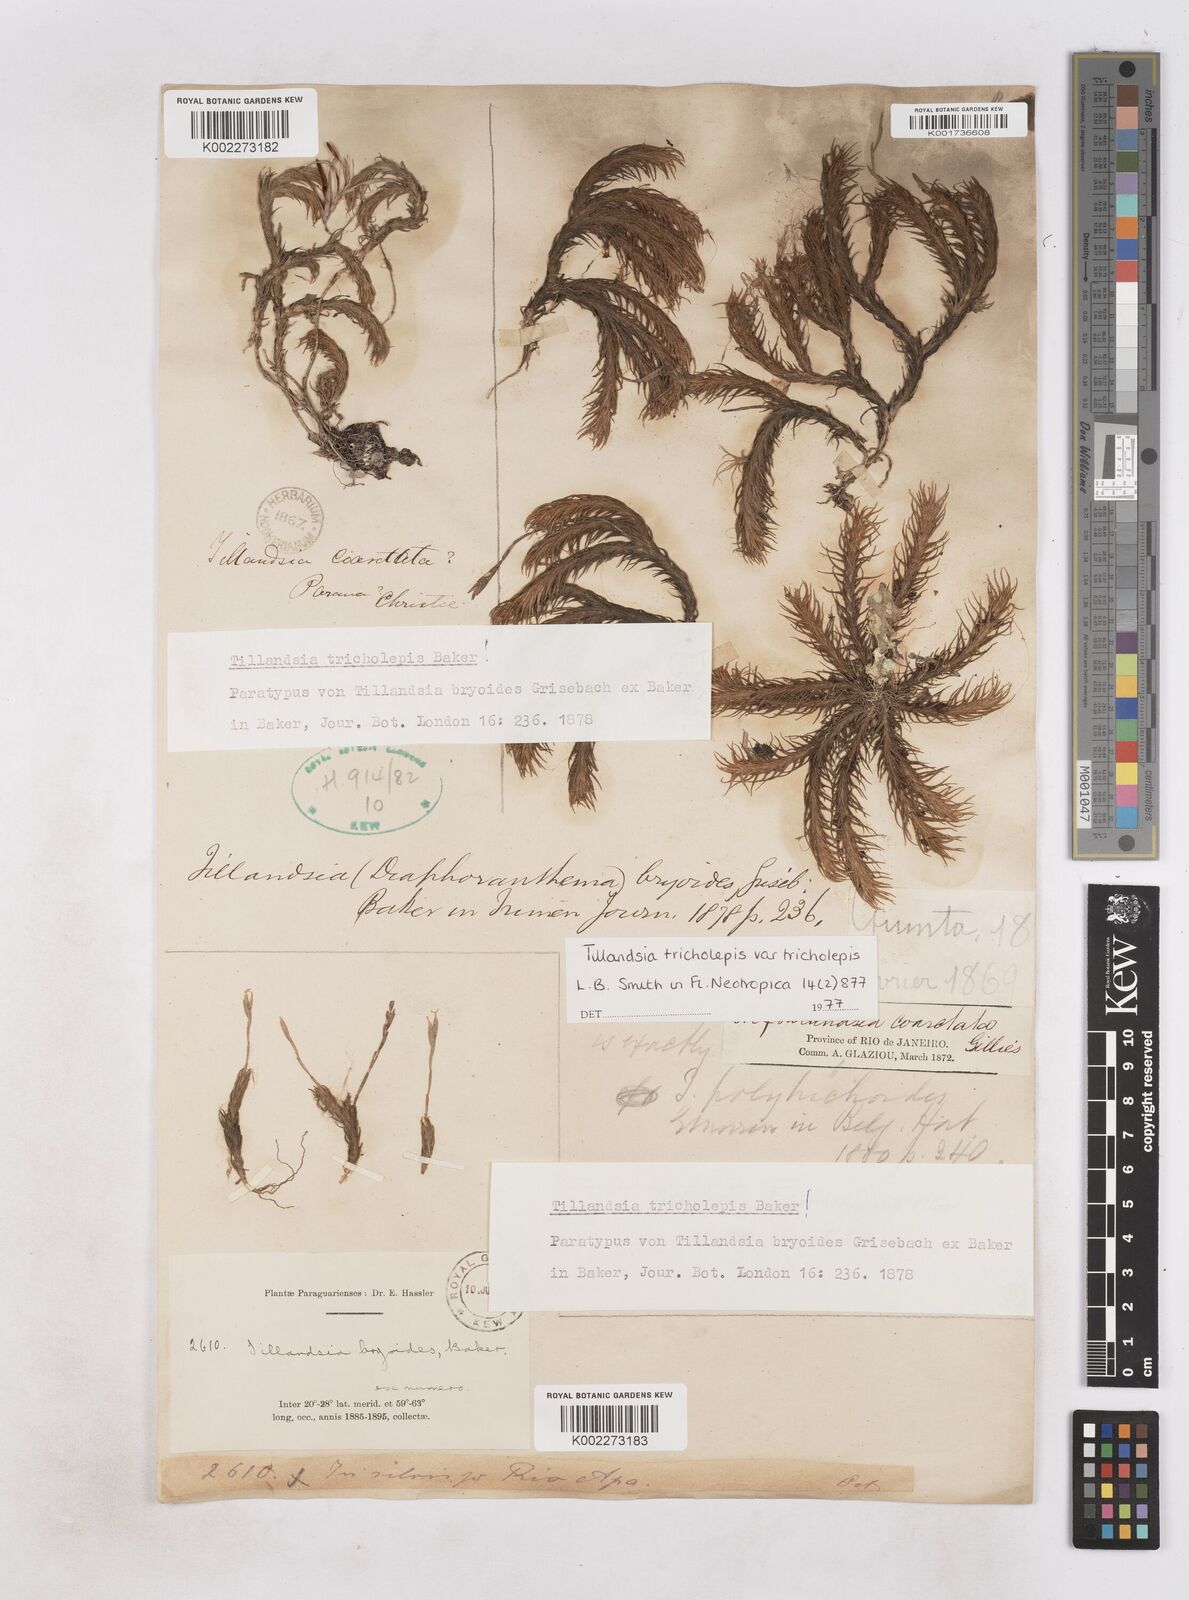 ROYAL BOTANIC GARDENS KEW
K002273182
ROYAL BOTANIC GARDENS KEW
K001736608
HERBARIUM
1867
HOOKERIANUM
Tillandsia coarctata?
Parana? Christie.
Tillandsia tricholepis Baker!
Paratypus von Tillandsia bryoides Grisebach ex Baker
in Baker, Jour. Bot. London 16: 236. 1878
ROYAL BOTANIC GARDENS
H 914/82
10
KEW
Tillandsia (Diaphoranthema) bryoides, Griseb:
Baker in Trimen Journ. 1878 p. 236,
18
vrier 1869
Tillandsia tricholepis var tricholepis
L.B. Smith in Fl. Neotropica 14(2) 877
DET. 1977
coarctata
Gillies
Province of RIO de JANEIRO.
Comm. A. GLAZIOU, March 1872.
is exactly
T. polytrichoides
E Morren in Belg. Hort
1880 p. 240.
Tillandsia tricholepis Baker!
Paratypus von Tillandsia bryoides Grisebach ex Baker
in Baker, Jour. Bot. London 16: 236. 1878
ROYAL G
10.JU
KEW
Plantæ Paraguarienses: Dr. E. Hassler
2610. Tillandsia bryoides, Baker.
ex numero.
Inter 20°-28° lat. merid. et 59°-63°
long, occ., annis 1885-1895, collectæ.
ROYAL BOTANIC GARDENS KEW
K002273183
2610. In silvis pr Rio Apa. Oct
inches
centimeters
Density
Don Williams
M001047
Kew
Royal Botanic Gardens
copyright reserved
0 1 2 3 4 5 6 7 8 9 10
cm